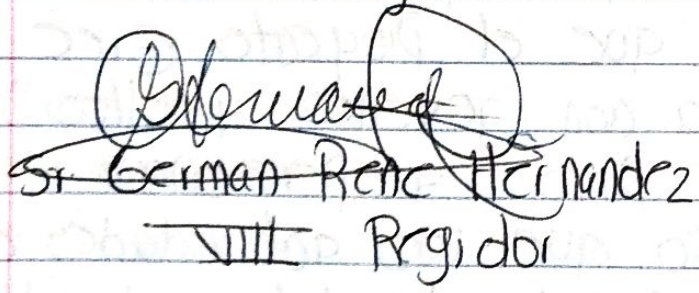 Sr German Rene Hernandez
VIII Regidor